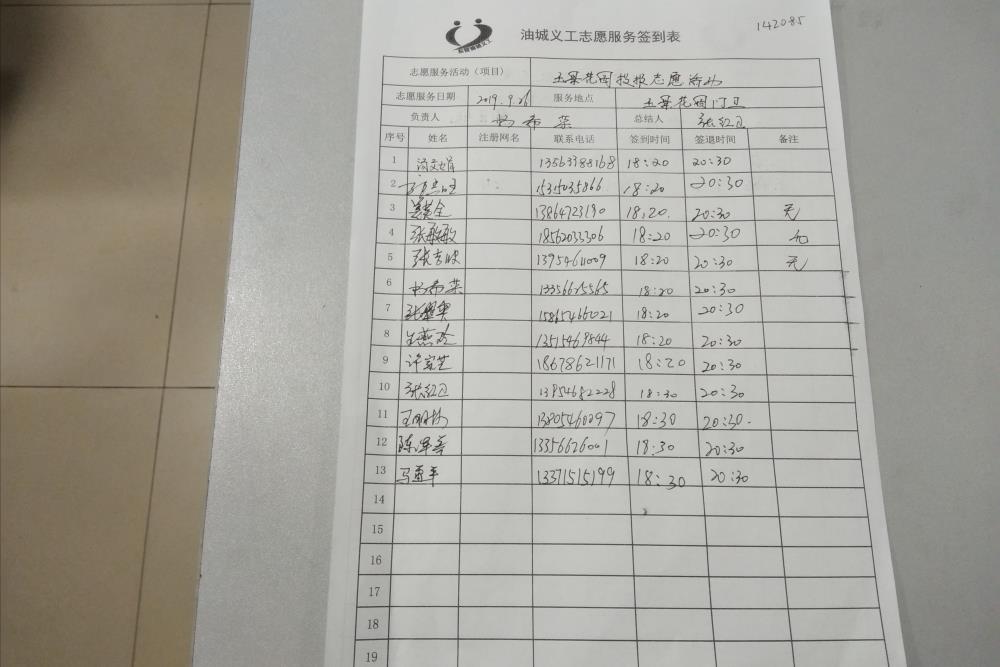 142085
油城义工志愿服务签到表
志愿服务活动（项目） 五景花园投报志愿活动
志愿服务日期 2019.9.26 服务地点 五景花园门卫
负责人 杨希荣 总结人 张红卫
序号 姓名 注册网名 联系电话 签到时间 签退时间 备注
1 18:20 20:30
2 15315035866 18:20 20:30
3 13864723190 18:20. 20:30 无
4 张敏敏 18562033306 18:20 20:30 无
5 13954611009 18:20 20:30 无
6 杨希荣 13356625565 18:20 20:30
7 15865466021 18:20 20:30
8 13515469844 18:20 20:30
9 许家芝 18678621171 18:20 20:30
10 张红卫 13954682228 18:30 20:30
11 13805460097 18:30 20:30.
12 13356626001 18:30 20:30
13 13371515199 18:30 20:30
14
15
16
17
18
19